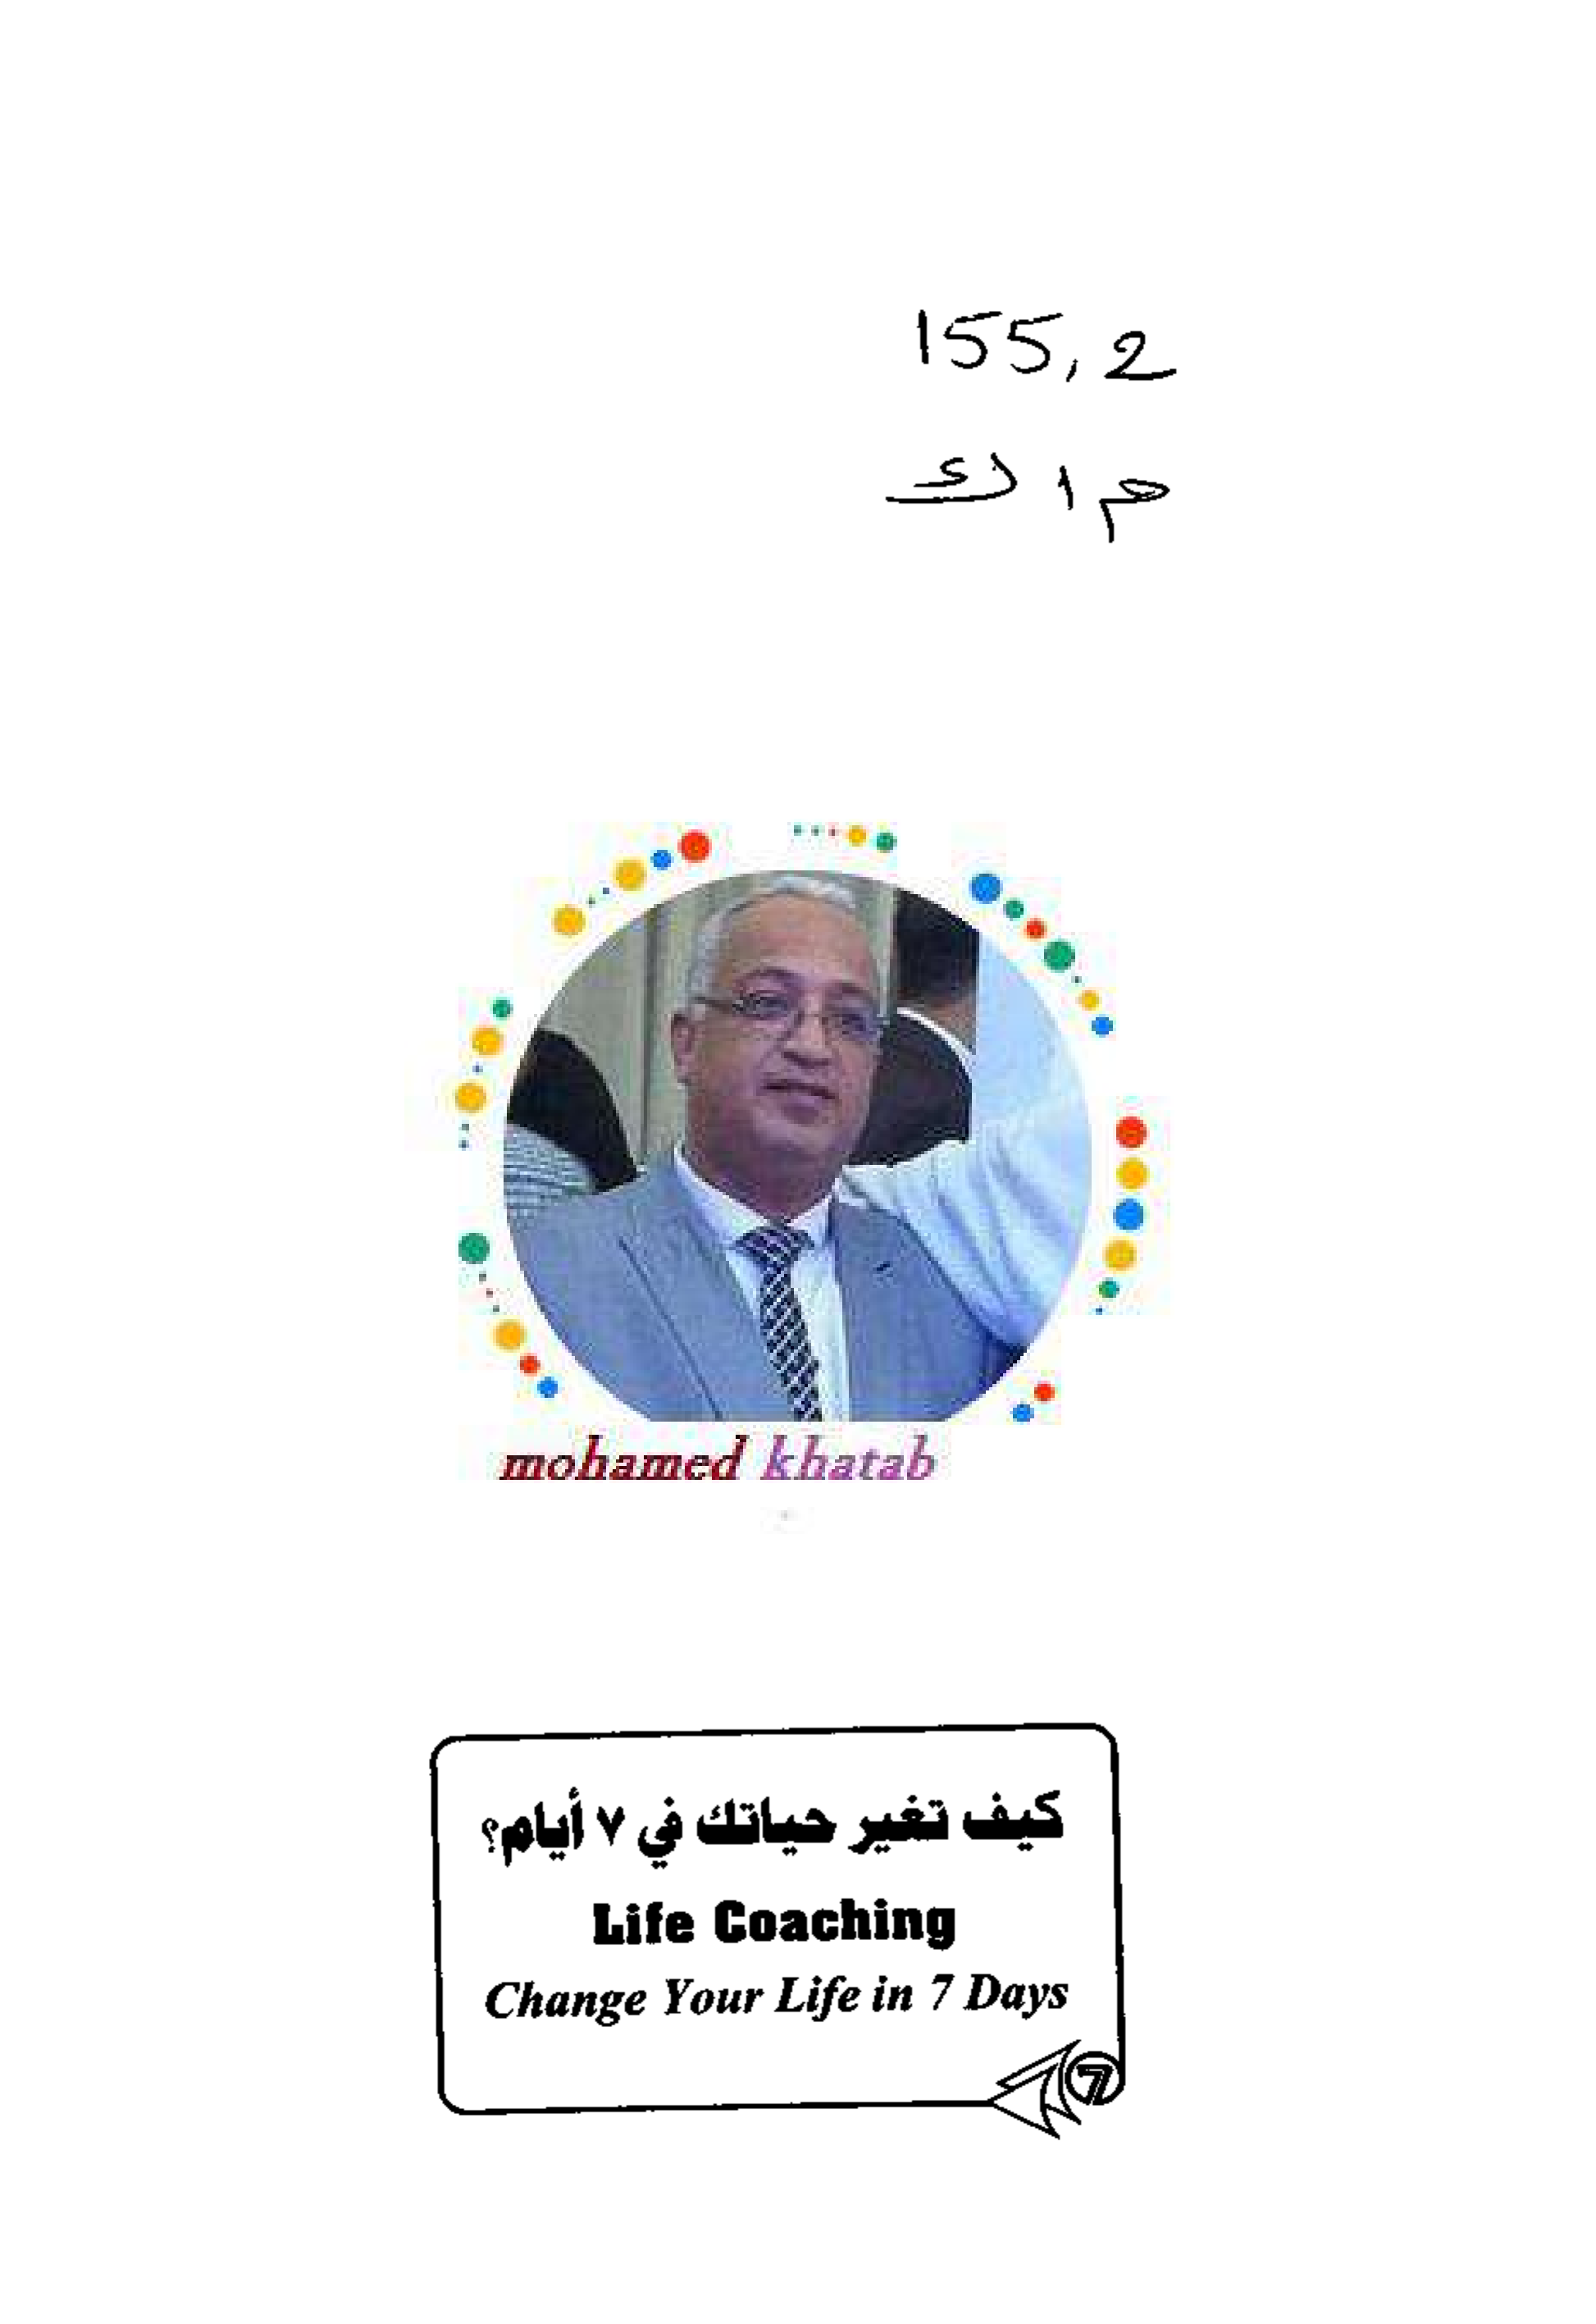 155,2
م ا ك
mohamed khatab
كيف تغير حياتك في ٧ أيام؟
Life Coaching
Change Your Life in 7 Days
7